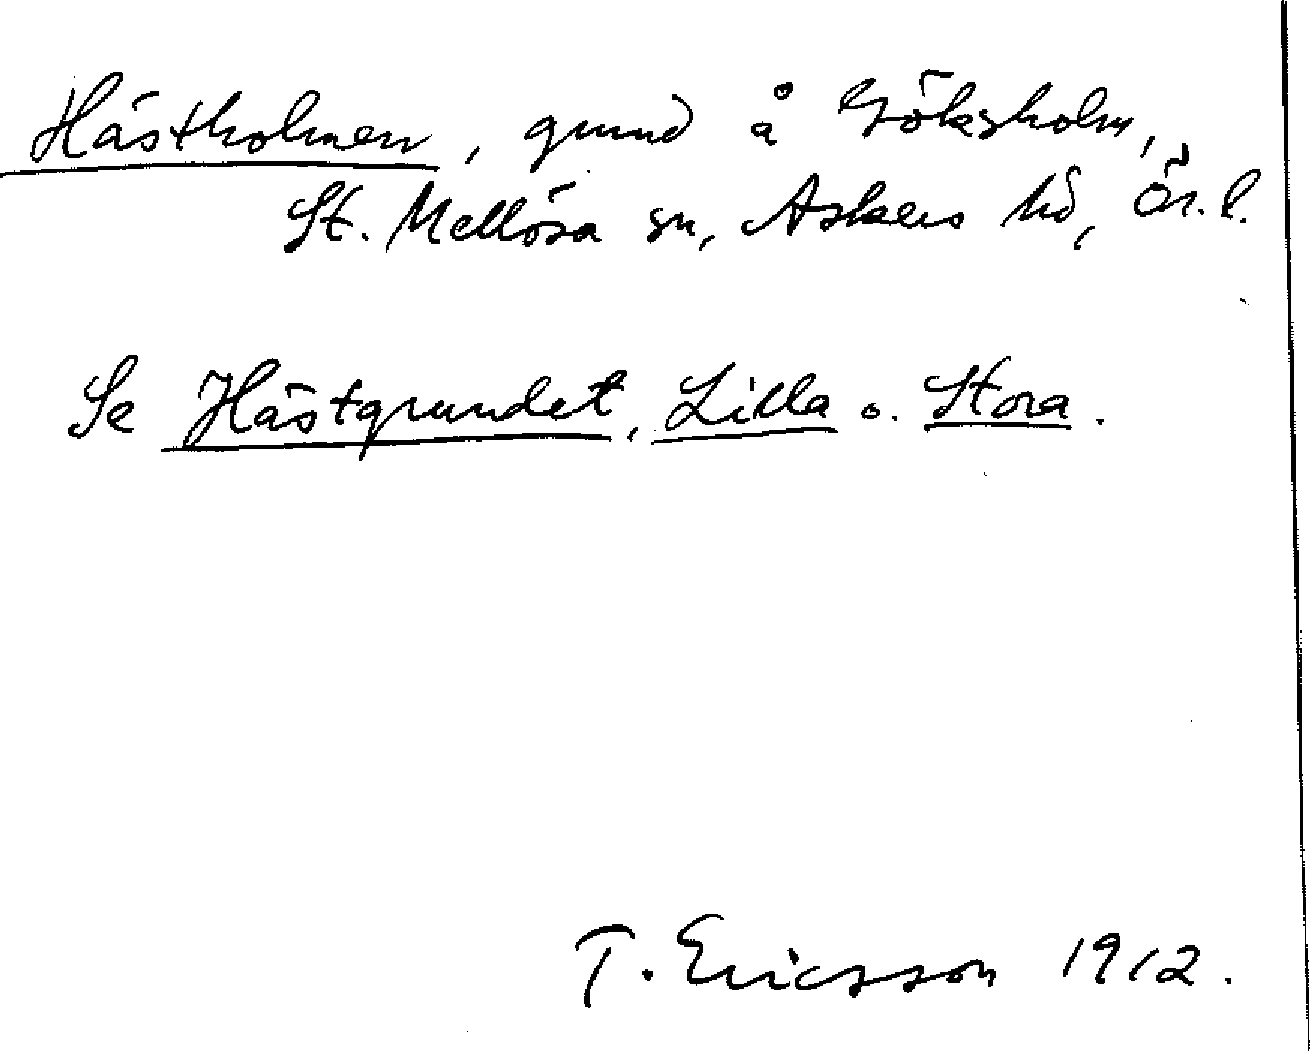 Hästholmen, grund å Göksholm,
St. Mellösa sn, Askers hd, Ör. l.
Se Hästgrundet, Lilla o. Stora.
T. Ericsson 1912.